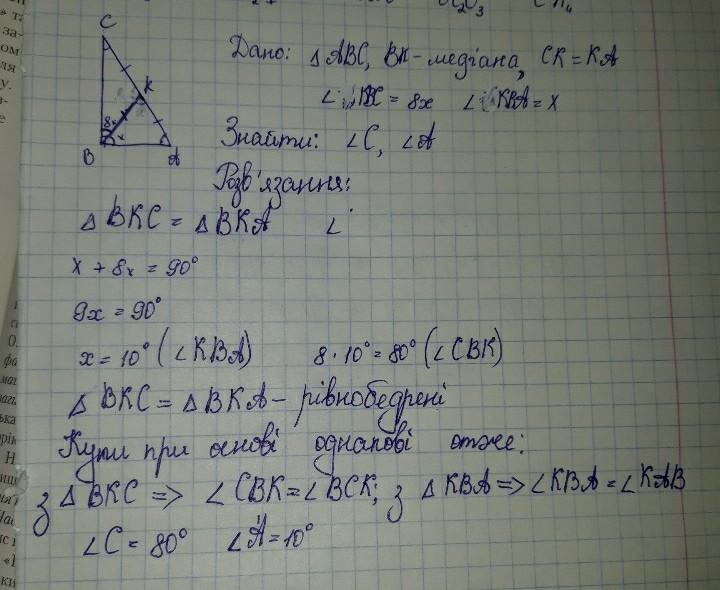 C
Дано: △ABC, BK - медіана, CK = KA
K
∠KBC = 8x ∠KBA = x
8x
x
B
A
Знайти: ∠C, ∠A
Розв'язання:
△BKC = △BKA ∠
x + 8x = 90°
9x = 90°
x = 10° (∠KBA) 8 · 10° = 80° (∠CBK)
△BKC = △BKA - рівнобедрені
Кути при основі однакові отже:
з △BKC => ∠CBK = ∠BCK; з △KBA => ∠KBA = ∠KAB
∠C = 80° ∠A = 10°